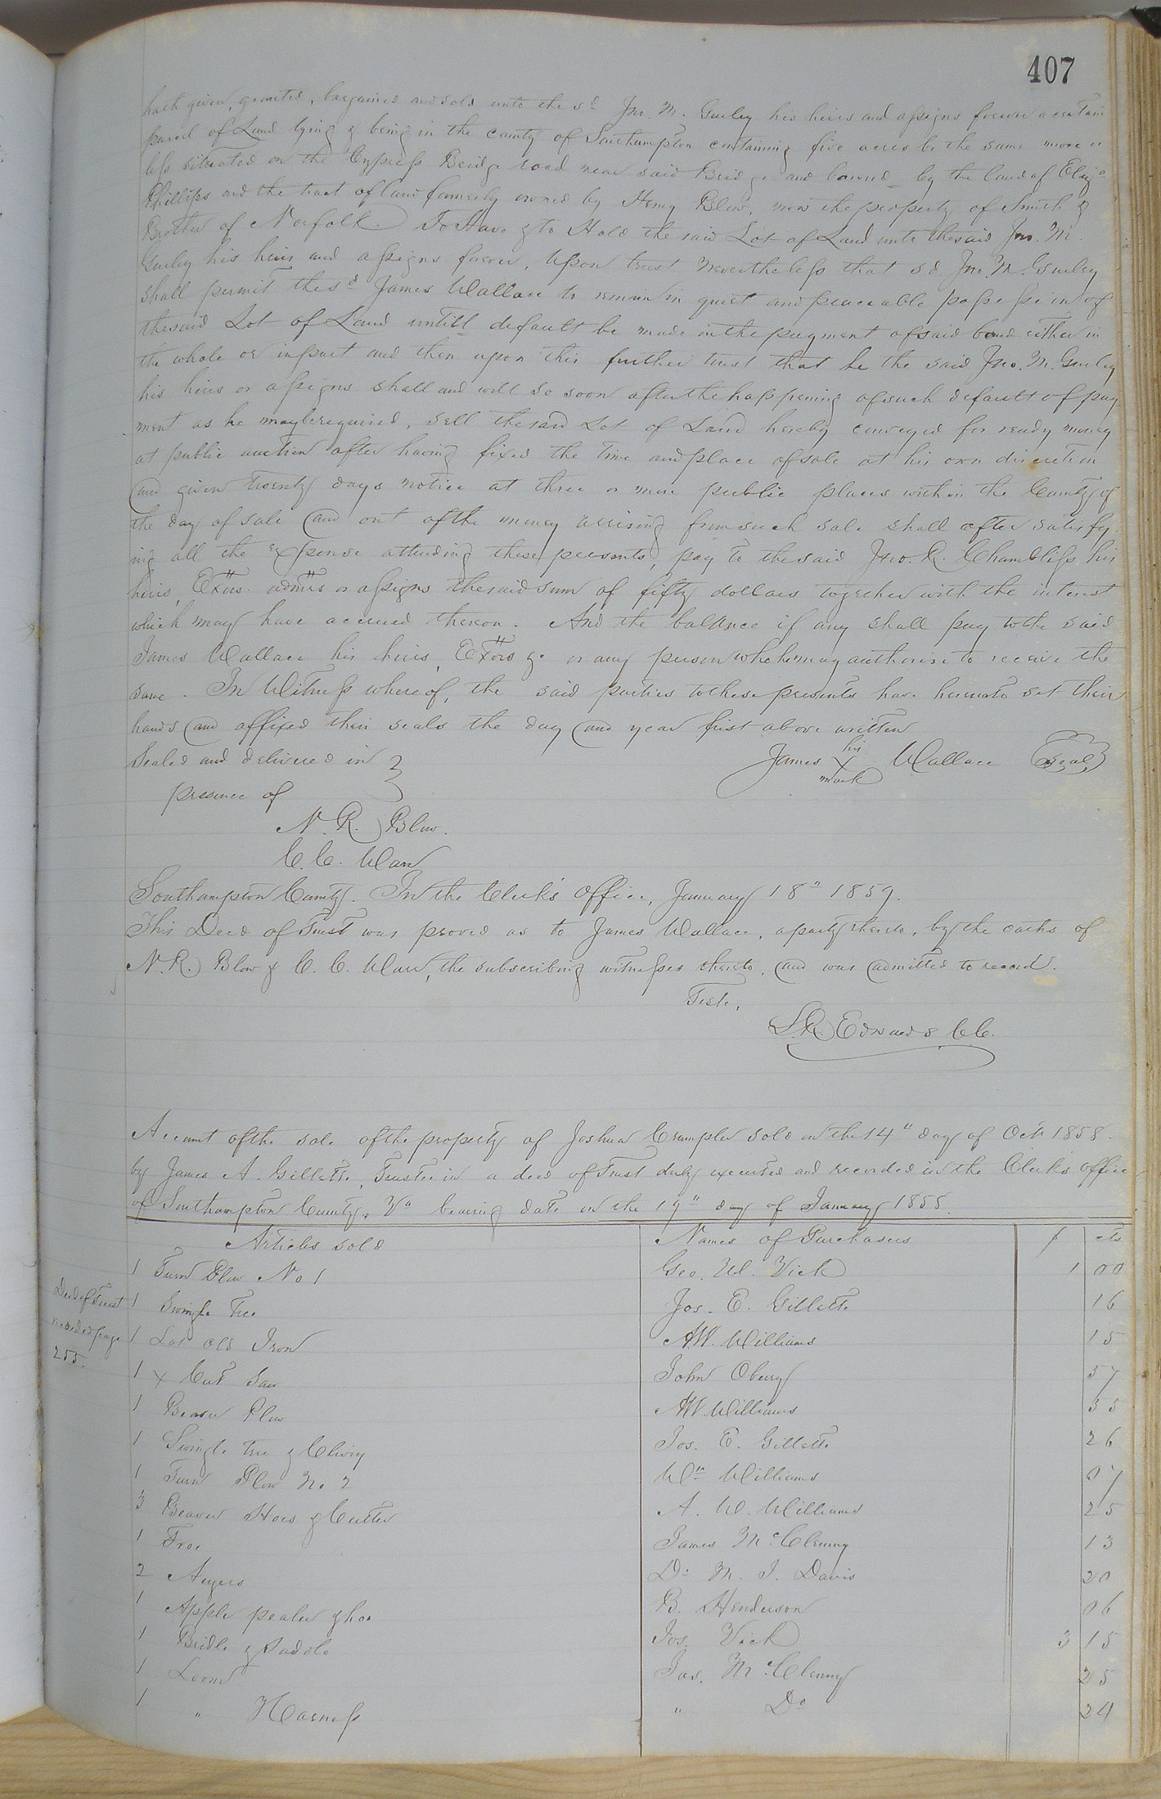 407
hath given, granted, bargained and sold unto the sd Jno. M. Gurley his heirs and assigns forever a certain
parcel of Land lying & being in the county of Southampton containing five acres be the same more or
less situated on the Cypress Bridge road near said Bridge and bound by the land of
Phillips and the tract of land formerly owned by Henry Blow, now the property of Smith &
Brother of Norfolk To Have & to Hold the said Lot of Land unto the said Jno. M.
Gurley his heirs and assigns forever, Upon trust Nevertheless that sd Jno. M. Gurley
shall permit the sd James Wallace to remain in quiet and peaceable possession of
the said Lot of Land untill default be made in the payment of said bond either in
the whole or in part and then upon this further trust that he the said Jno. M. Gurley
his heirs or assigns shall and will so soon after the happening of such default of pay
ment as he may be required, sell the said Lot of Land hereby conveyed for ready money
at public auction after having fixed the time and place of sale at his own discretion
and given twenty days notice at three or more public places within the County of
the day of sale and out of the money arrising from such sale shall after satisfy-
ing all the expense attending these presents, pay to the said Jno. R. Chambliss his
heirs, Exors. admrs or assigns the said sum of fifty dollars together with the interest
which may have accrued thereon. And the balance if any shall pay to the said
James Wallace his heirs, Exors &c or any person who he may authorise to receive the
same. In Witness whereof, the said parties to these presents have hereunto set their
hands and affixed their seals the day and year first above written
Sealed and delivered in } James his X mark Wallace Seal
presence of
N. R. Blow.
C. C. Warr
Southampton County. In the Clerk's Office, January 18th 1859.
This Deed of Trust was proved as to James Wallace, a party thereto, by the oaths of
N. R. Blow & C. C. Warr, the subscribing witnesses thereto, and was admitted to record.
Teste,
L. R. Edwards C.C.
Account of the sale of the property of Joshua Crumpler sold on the 14" day of Oct 1858.
by James A. Gillette, Trustee in a deed of Trust duly executed and recorded in the Clerk's office
of Southampton County, Va bearing date on the 19" day of January 1858.
Articles sold Names of Purchasers $ cts
1 Turn Plow No 1 Geo. W. Vick 1 00
Deed of Trust
recorded page
255.
1 Swingle Tree Jos. E. Gillette 16
1 Lot old Iron A W. Williams 15
1 X Cut Saw John Obery 57
1 Beaver Plow A W Williams 35
1 Swingle tree & Clivey Jos. E. Gillette 26
1 Turn Plow No 2 Wm Williams 07
3 Beaver Hoes & Cutter A. W. Williams 25
1 Froe James McClenny 13
2 Augers Dr M. J. Davis 20
1 Apple pealer & hoe B. Henderson 06
1 Bridle & Saddle Jos. Vick 3 15
1 Loom Jas. McClenny 25
1 " Harness " Do 24